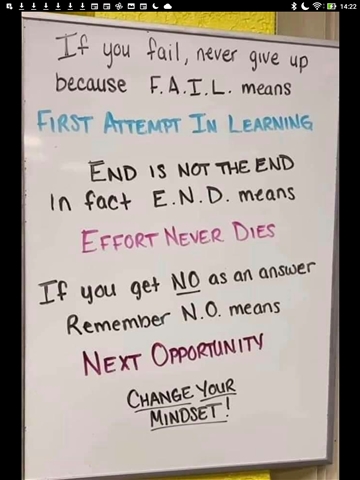 14:22
If you fail, never give up
because F.A.I.L. means
FIRST ATTEMPT IN LEARNING
END IS NOT THE END
In fact E.N.D. means
EFFORT NEVER DIES
If you get NO as an answer
Remember N.O. means
NEXT OPPORTUNITY
CHANGE YOUR
MINDSET!